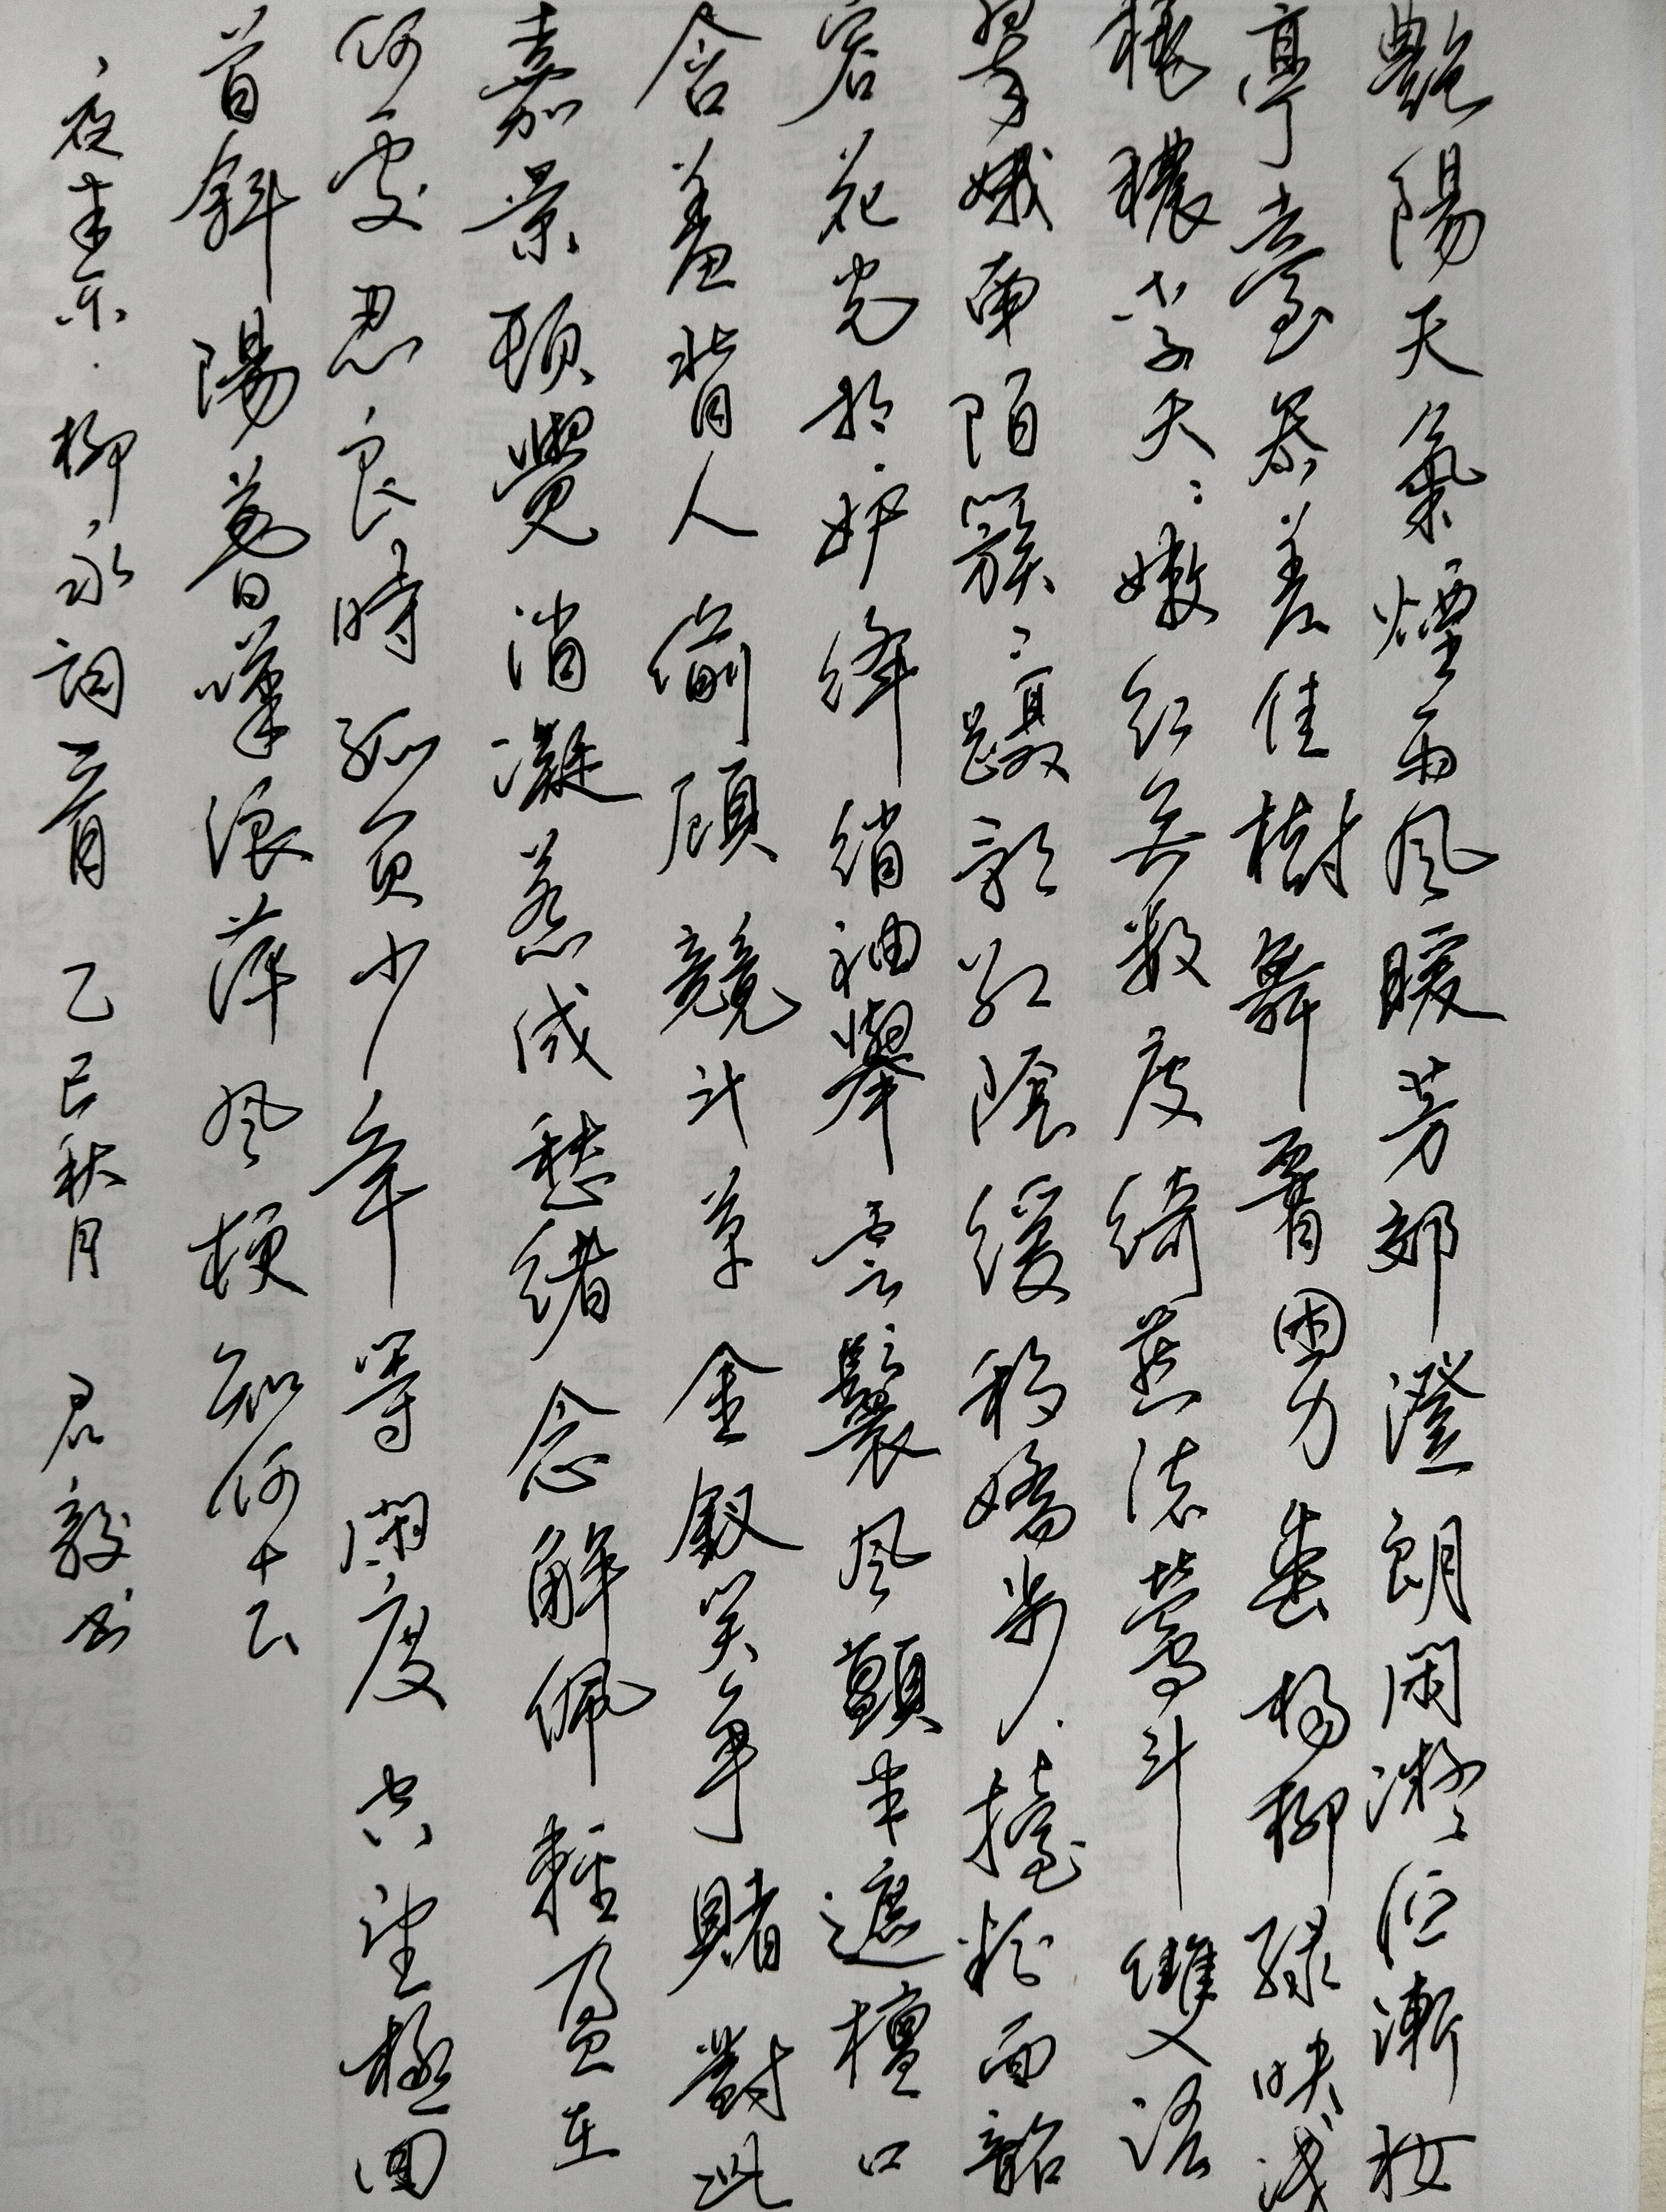 艷陽天氣煙雨风暖芳郊澄朗闲凝佇漸妝
亭臺參差佳樹舞腰困力垂楊柳緑映淺
桃穠李夭:嫩红无数度綺燕流莺斗雙语
翠娥南陌簇:躡影红陰缓移嬌步擡粉面韶
容花光相妒絳綃袖舉雲鬟风顫半遮檀口
含羞背人偷顧競斗草金釵笑爭賭對此
嘉景頓覺消凝惹成愁緒念解佩輕盈在
何處忍良時孤負少年等闲度空望極回
首斜陽暮嘆浪萍风梗知何去
夜半乐·柳永词一首 乙巳秋月 君毅书